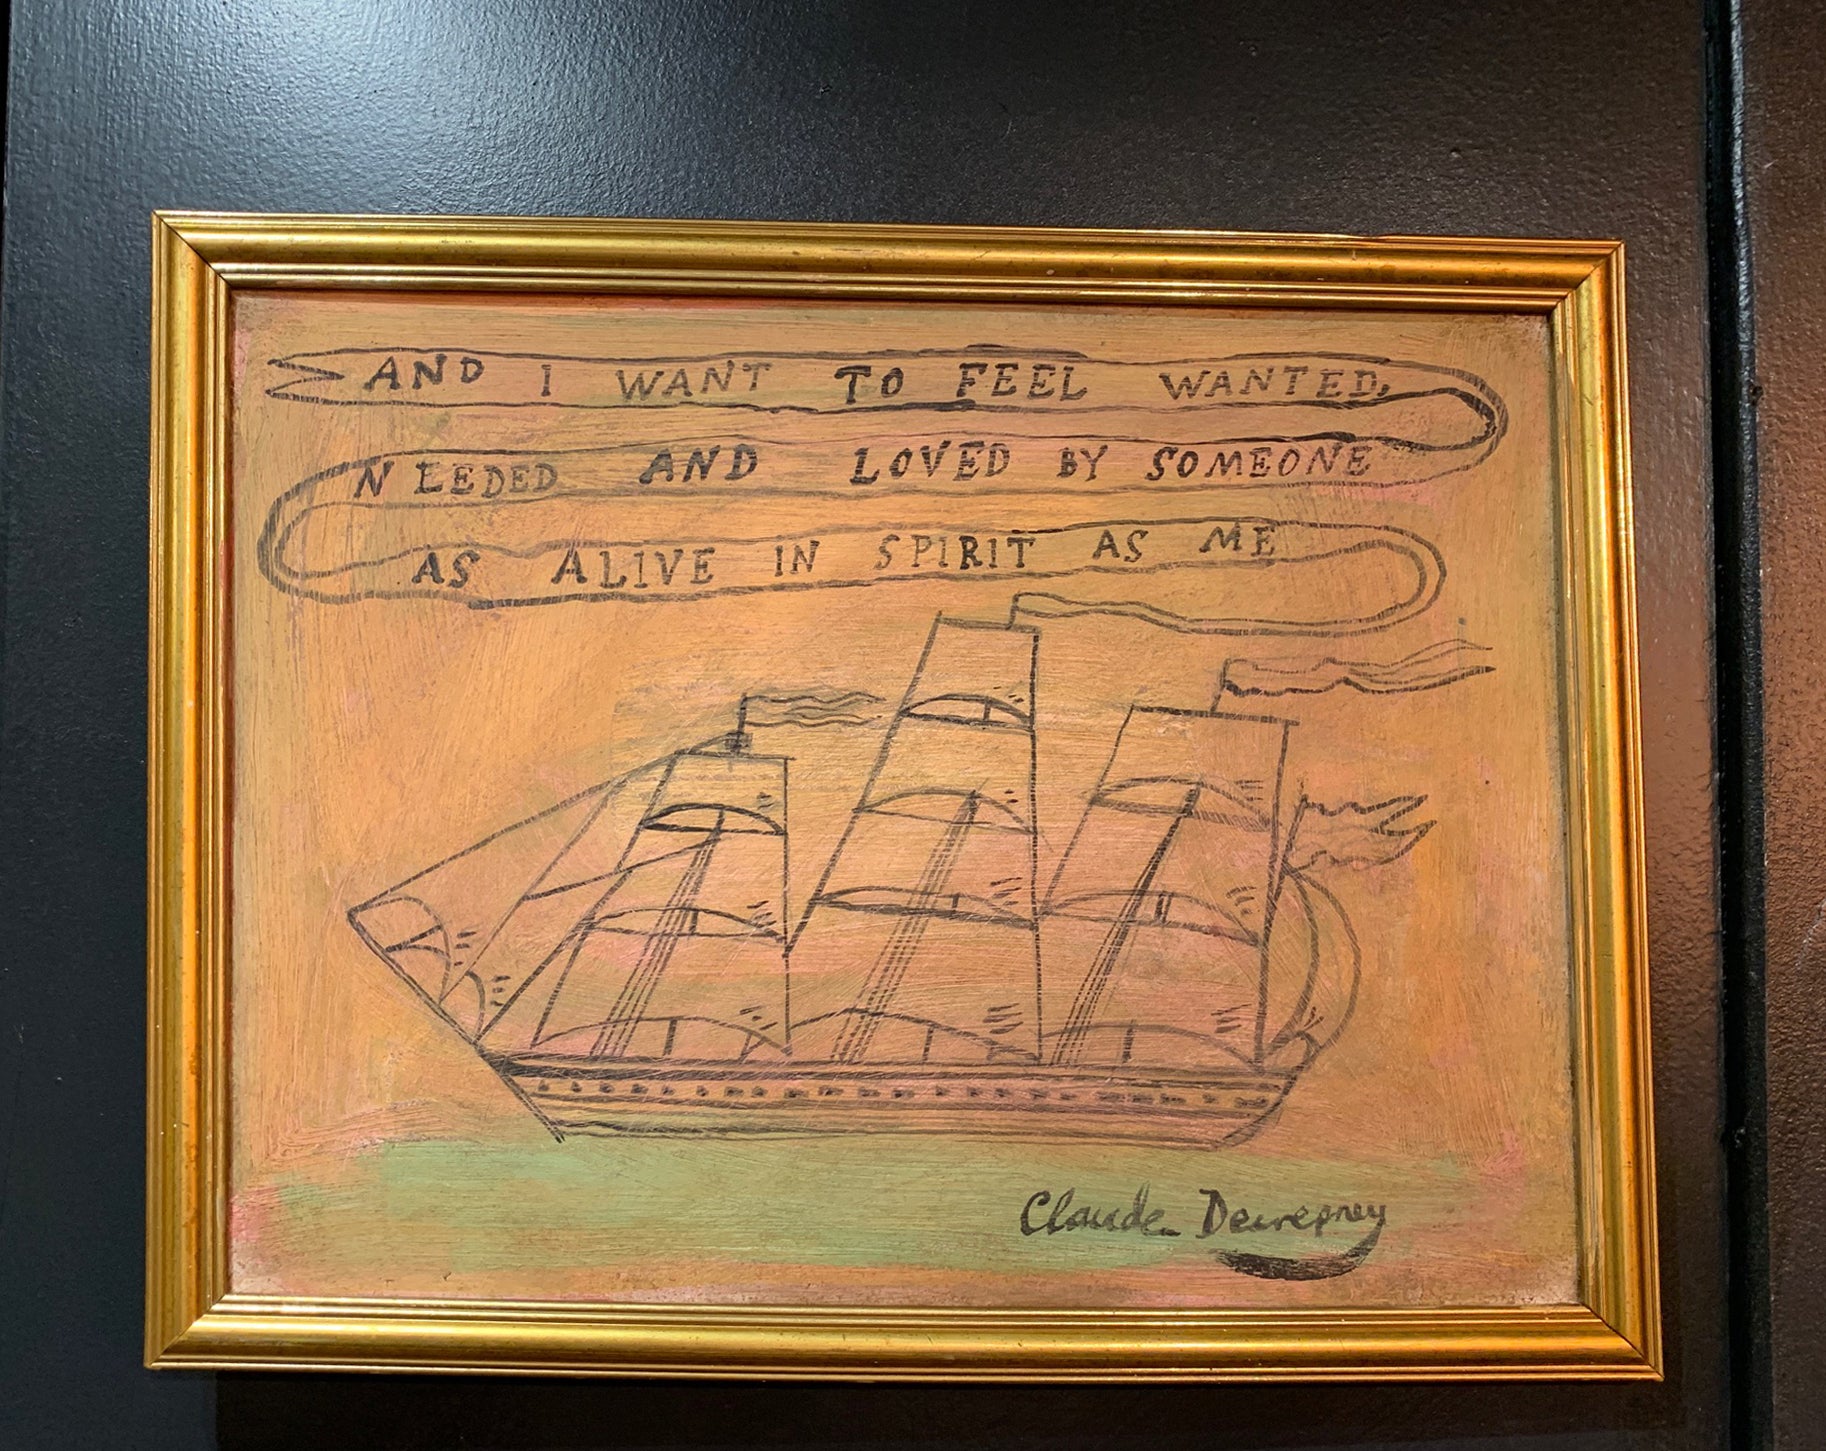 AND I WANT TO FEEL WANTED,
NEEDED AND LOVED BY SOMEONE
AS ALIVE IN SPIRIT AS ME
Claude